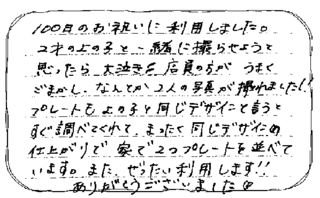 100日のお祝いに利用しました。
2才の上の子と一緒に撮らせようと
思ったら大泣きで店員の方がうまく
ごまかし、なんとか2人の写真が撮れました!!
プレートも上の子と同じデザインと言うと
すぐ調べてくれて、まったく同じデザインの
仕上がりで家で2つプレートを並べて
います。また、ぜったい利用します!!
ありがとうございました